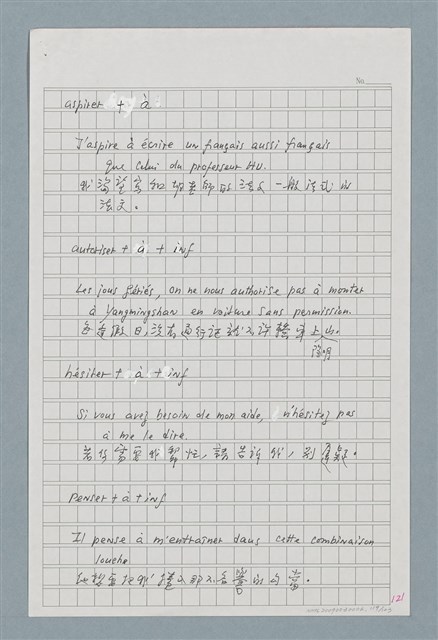 No.
aspirer + à
J'aspire à écrire un français aussi français
que celui du professeur HU.
我渴望寫如胡老師的法文一般法式的
法文。
autoriser + à + inf
Les jours fériés, on ne nous authorise pas à monter
à Yangmingshan en voiture sans permission.
每逢假日,沒有通行証就不許 車上山。
陽明
hésiter + à + inf
Si vous avez besoin de mon aide, n'hésitez pas
à me le dire.
若你需要我幫忙,請告訴我,別遲疑。
penser + à + inf
Il pense à m'entraîner dans cette combinaison
louche.
他想拖我 的勾當。
121